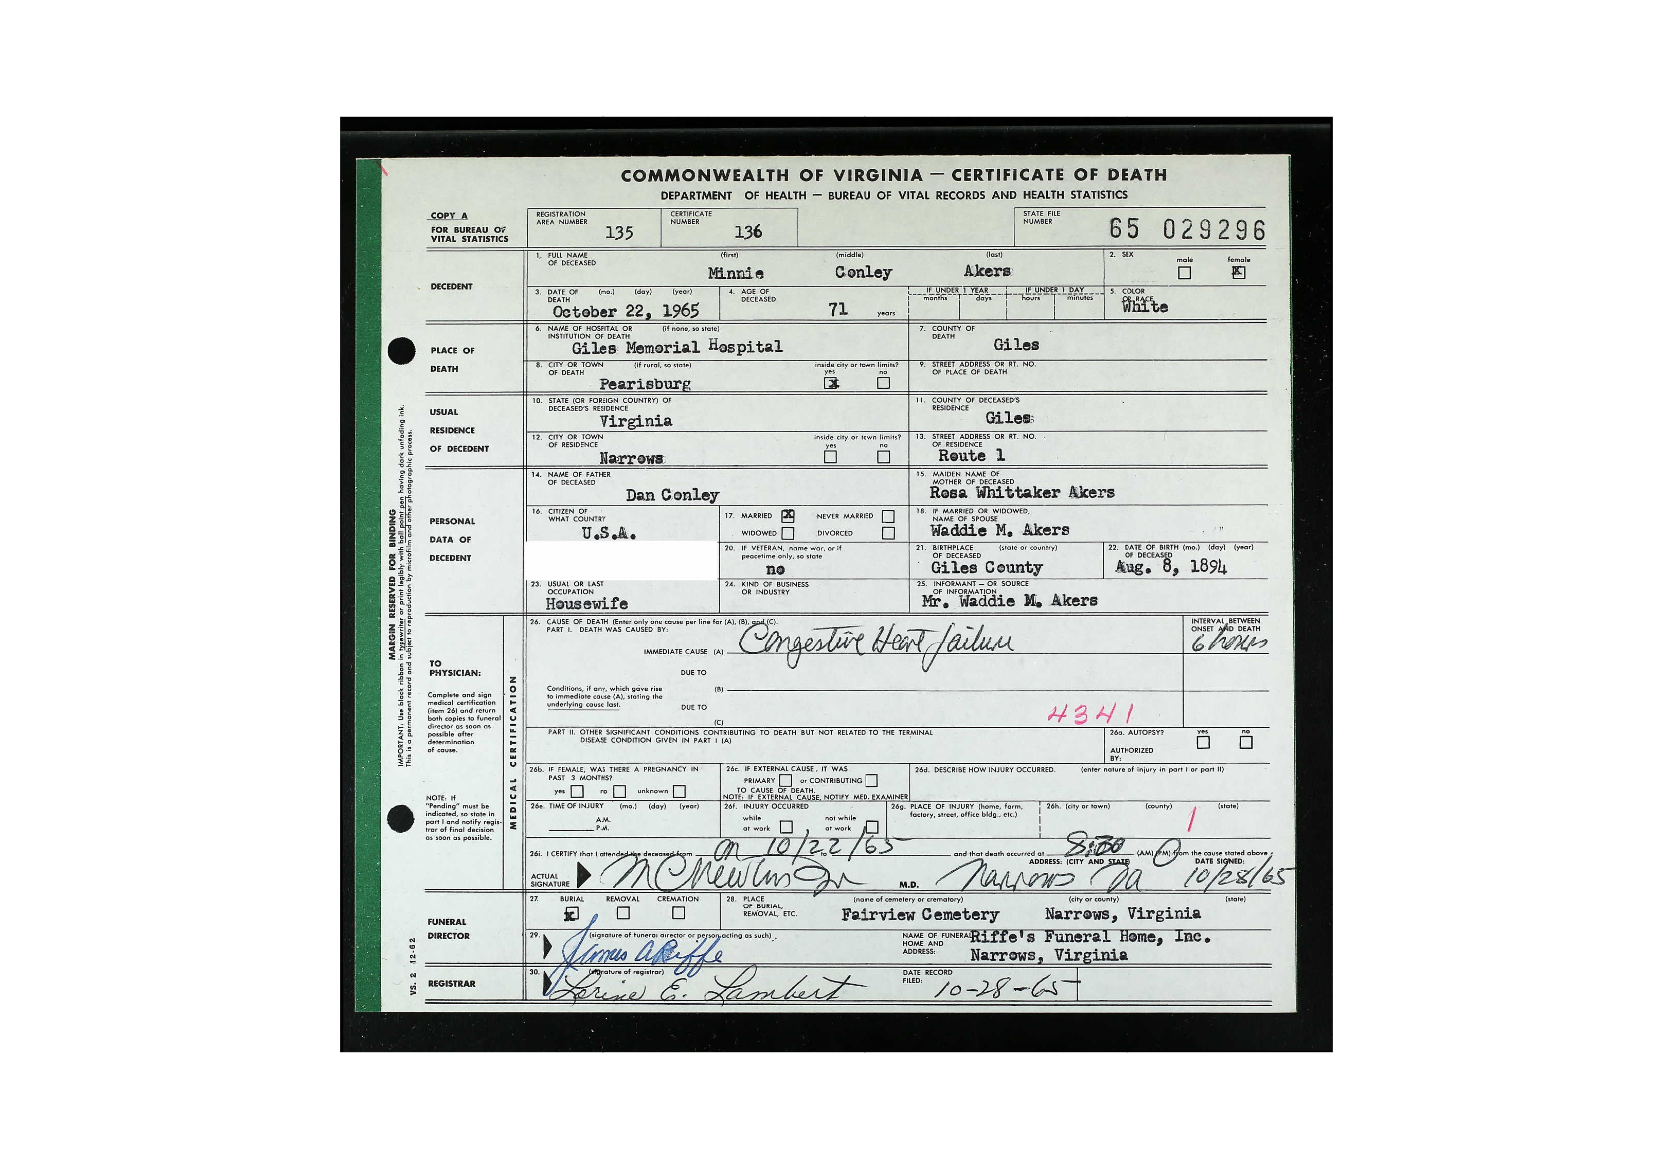 COMMONWEALTH OF VIRGINIA — CERTIFICATE OF DEATH
DEPARTMENT OF HEALTH — BUREAU OF VITAL RECORDS AND HEALTH STATISTICS
COPY A
FOR BUREAU OF
VITAL STATISTICS
REGISTRATION
AREA NUMBER 135
CERTIFICATE
NUMBER 136
STATE FILE
NUMBER 65 029296
DECEDENT
1. FULL NAME
OF DECEASED
(first) (middle) (last)
Minnie Conley Akers
2. SEX
male female
X
3. DATE OF (mo.) (day) (year)
DEATH
October 22, 1965
4. AGE OF
DECEASED
71 years
IF UNDER 1 YEAR
months days
IF UNDER 1 DAY
hours minutes
5. COLOR
OR RACE
White
PLACE OF
DEATH
6. NAME OF HOSPITAL OR (if none, so state)
INSTITUTION OF DEATH
Giles Memorial Hospital
7. COUNTY OF
DEATH
Giles
8. CITY OR TOWN (if rural, so state)
OF DEATH
Pearisburg
inside city or town limits?
yes no
X
9. STREET ADDRESS OR RT. NO.
OF PLACE OF DEATH
USUAL
RESIDENCE
OF DECEDENT
10. STATE (OR FOREIGN COUNTRY) OF
DECEASED'S RESIDENCE
Virginia
11. COUNTY OF DECEASED'S
RESIDENCE
Giles
12. CITY OR TOWN
OF RESIDENCE
Narrows
inside city or town limits?
yes no
13. STREET ADDRESS OR RT. NO.
OF RESIDENCE
Route 1
PERSONAL
DATA OF
DECEDENT
14. NAME OF FATHER
OF DECEASED
Dan Conley
15. MAIDEN NAME OF
MOTHER OF DECEASED
Rosa Whittaker Akers
16. CITIZEN OF
WHAT COUNTRY
U.S.A.
17. MARRIED X NEVER MARRIED
WIDOWED DIVORCED
18. IF MARRIED OR WIDOWED,
NAME OF SPOUSE
Waddie M. Akers
20. IF VETERAN, name war, or if
peacetime only, so state
no
21. BIRTHPLACE (state or country)
OF DECEASED
Giles County
22. DATE OF BIRTH (mo.) (day) (year)
OF DECEASED
Aug. 8, 1894
23. USUAL OR LAST
OCCUPATION
Housewife
24. KIND OF BUSINESS
OR INDUSTRY
25. INFORMANT — OR SOURCE
OF INFORMATION
Mr. Waddie M. Akers
MARGIN RESERVED FOR BINDING
IMPORTANT. Use black ribbon in typewriter or print legibly with ball point pen having dark unfading ink.
This is a permanent record and subject to reproduction by microfilm and other photographic process.
TO
PHYSICIAN:
Complete and sign
medical certification
(item 26) and return
both copies to funeral
director as soon as
possible after
determination
of cause.
NOTE: If
"Pending" must be
indicated, so state in
part I and notify regis-
trar of final decision
as soon as possible.
MEDICAL CERTIFICATION
26. CAUSE OF DEATH (Enter only one cause per line for (A), (B), and (C).
PART I. DEATH WAS CAUSED BY:
IMMEDIATE CAUSE (A) Congestive Heart failure
INTERVAL BETWEEN
ONSET AND DEATH
6 hours
DUE TO
Conditions, if any, which gave rise
to immediate cause (A), stating the
underlying cause last.
(B)
DUE TO
(C)
4341
PART II. OTHER SIGNIFICANT CONDITIONS CONTRIBUTING TO DEATH BUT NOT RELATED TO THE TERMINAL
DISEASE CONDITION GIVEN IN PART I (A)
26a. AUTOPSY? yes no
AUTHORIZED
BY:
26b. IF FEMALE, WAS THERE A PREGNANCY IN
PAST 3 MONTHS?
yes no unknown
26c. IF EXTERNAL CAUSE, IT WAS
PRIMARY or CONTRIBUTING
TO CAUSE OF DEATH.
NOTE: IF EXTERNAL CAUSE, NOTIFY MED. EXAMINER
26d. DESCRIBE HOW INJURY OCCURRED. (enter nature of injury in part I or part II)
26e. TIME OF INJURY (mo.) (day) (year)
A.M.
P.M.
26f. INJURY OCCURRED
while not while
at work at work
26g. PLACE OF INJURY (home, farm,
factory, street, office bldg., etc.)
26h. (city or town) (county) (state)
26i. I CERTIFY that I attended the deceased from on 10/22/65 to and that death occurred at 8:00 (AM) (PM) from the cause stated above.
ACTUAL
SIGNATURE
M.D.
ADDRESS: (CITY AND STATE)
Narrows Va
DATE SIGNED:
10/28/65
FUNERAL
DIRECTOR
27. BURIAL REMOVAL CREMATION
X
28. PLACE
OF BURIAL,
REMOVAL, ETC.
(name of cemetery or crematory) (city or county) (state)
Fairview Cemetery Narrows, Virginia
29. (signature of funeral director or person acting as such)
James A Riffe
NAME OF FUNERAL
HOME AND
ADDRESS:
Riffe's Funeral Home, Inc.
Narrows, Virginia
REGISTRAR
30. (signature of registrar)
Lorine E. Lambert
DATE RECORD
FILED: 10-28-65
VS. 2 12-62